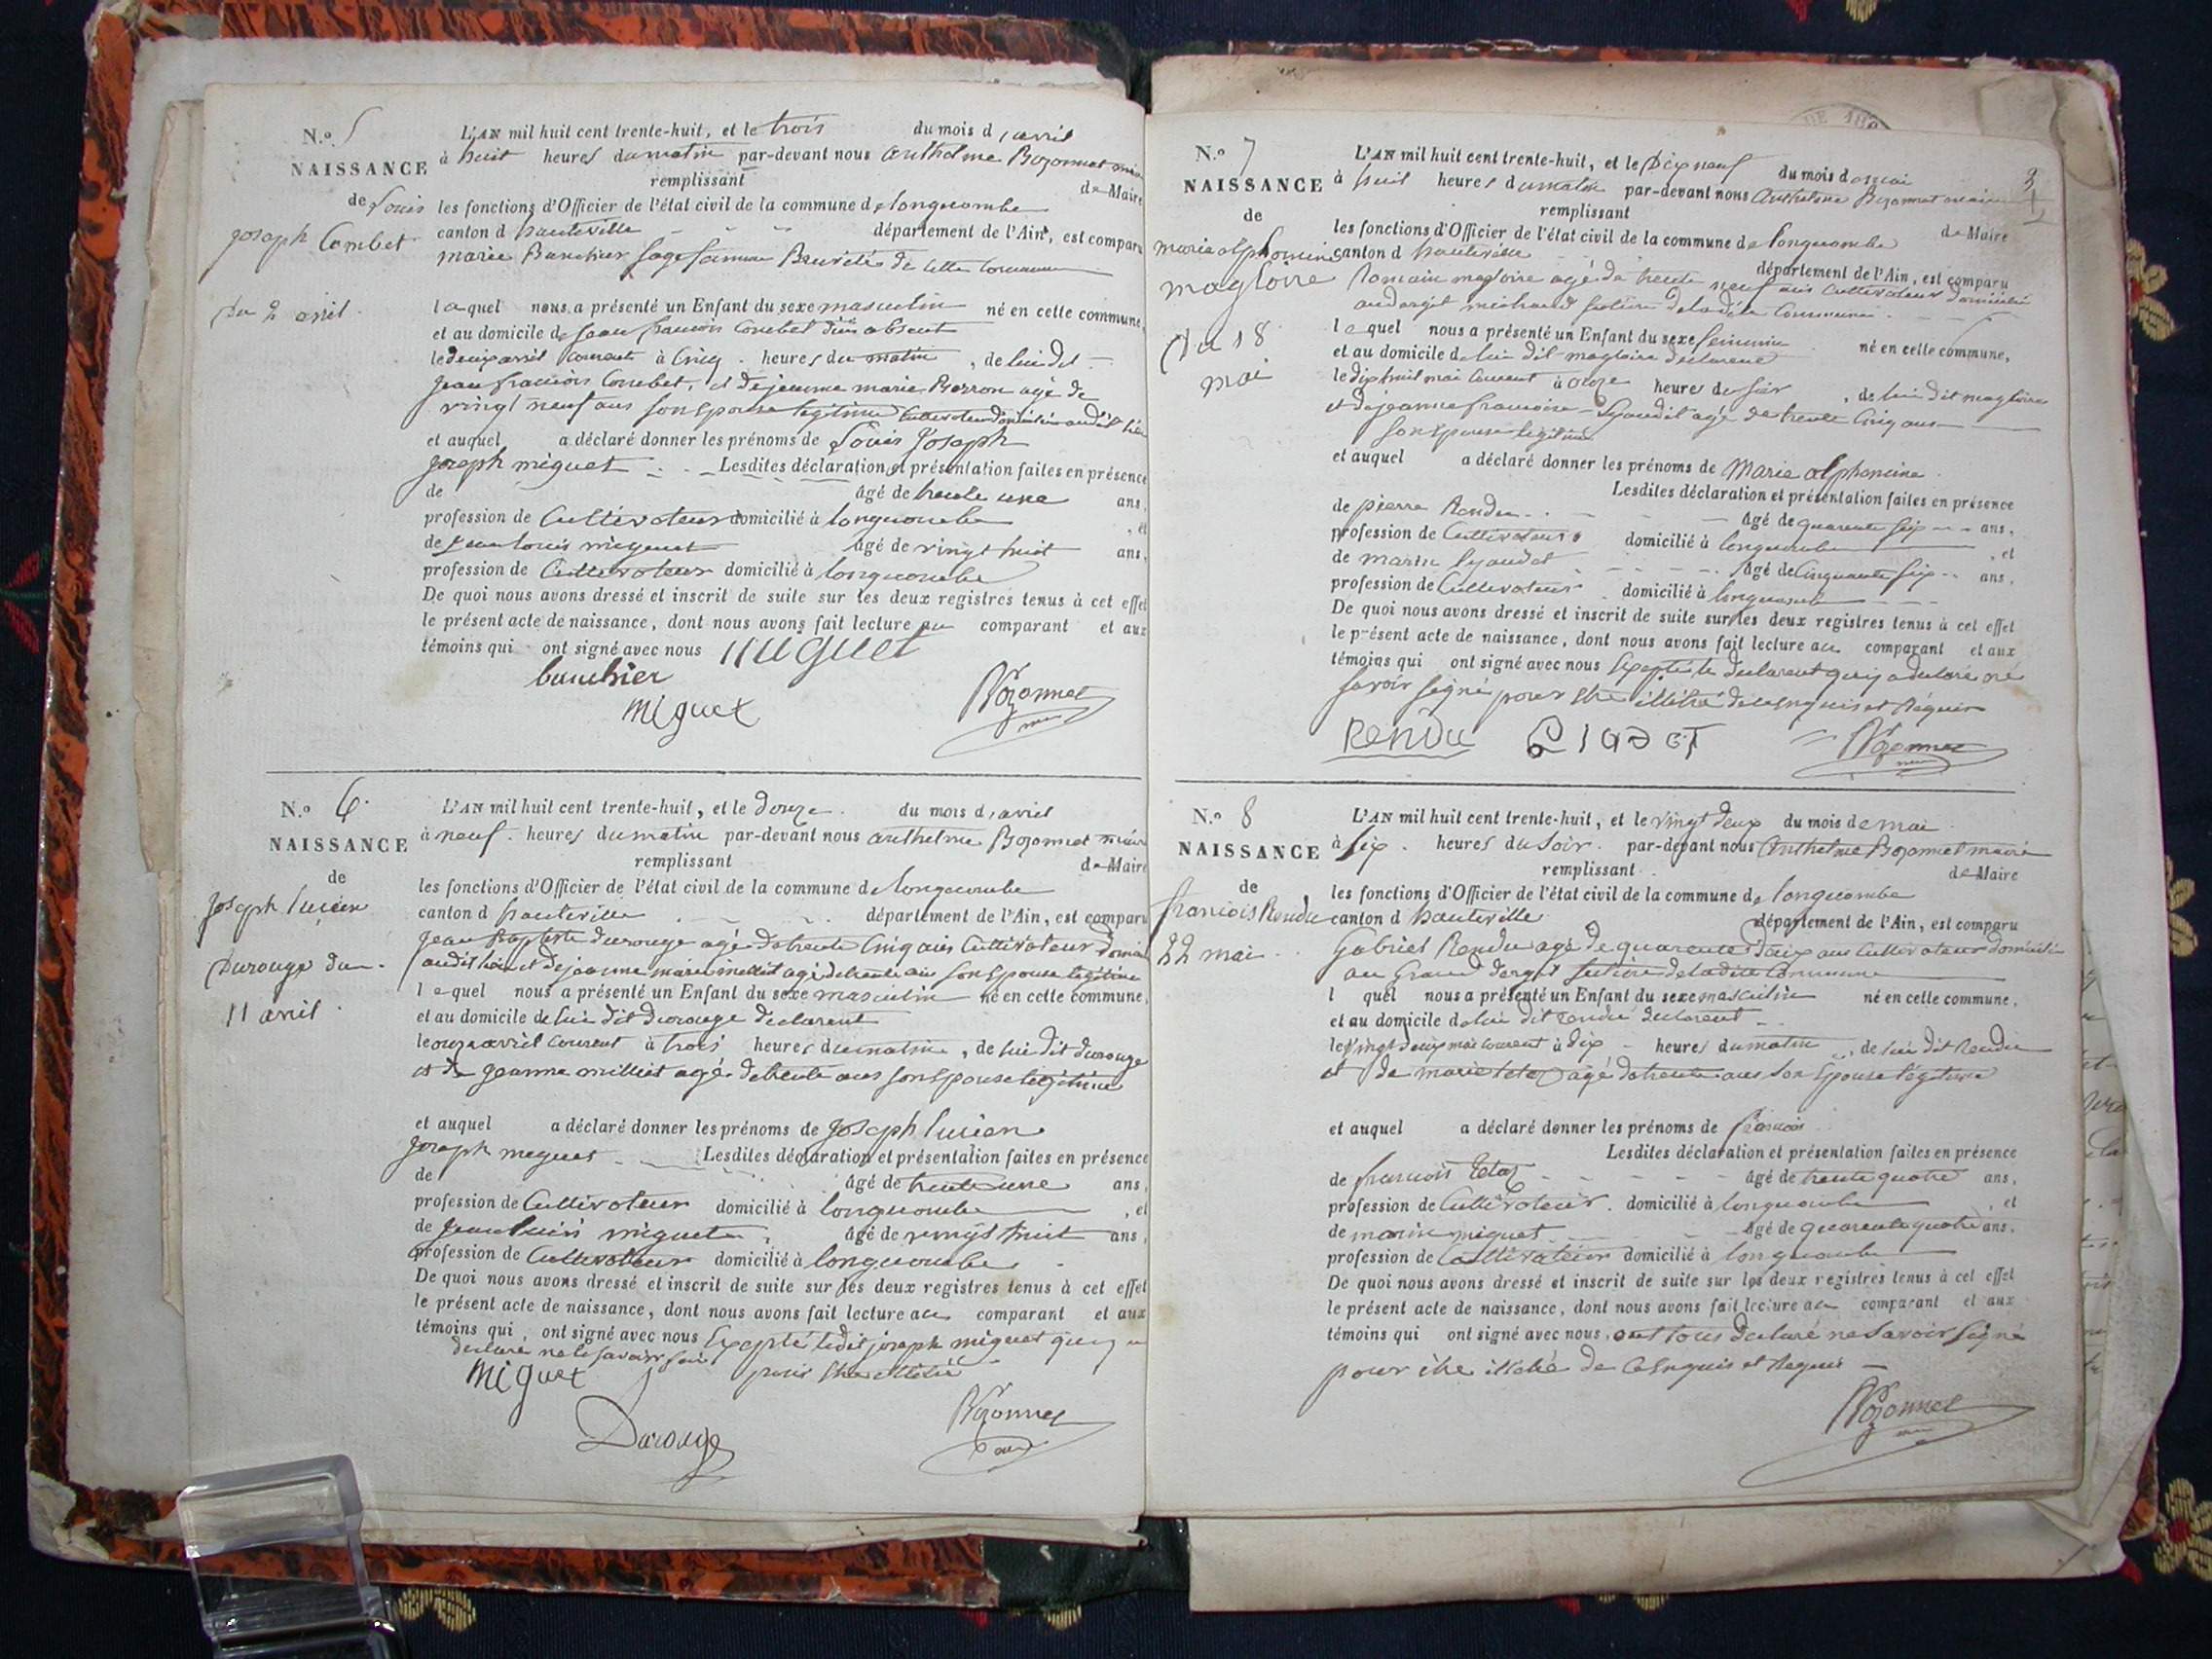 N.o 5
NAISSANCE
de Louis
joseph Combet
Du 2 avril
L'AN mil huit cent trente-huit, et le trois du mois d'avril
à huit heures du matin par-devant nous anthelme Bozonnet maire
remplissant de Maire
les fonctions d'Officier de l'état civil de la commune de longecombe
canton d hauteville département de l'Ain, est comparu
marie Bauchier sage femme Brevetée de cette commune
laquel nous a présenté un Enfant du sexe masculin né en cette commune,
et au domicile de jean francois Combet absent
le deux avril courant à Cinq heures du matin, de lui dit
jean francois Combet, et de jeanne marie Borron agé de
vingt neuf ans son Epouse légitime Cultivateur domicilié audit lieu
et auquel a déclaré donner les prénoms de Louis Joseph
joseph miguet Lesdites déclaration et présentation faites en présence
de âgé de trente une ans,
profession de Cultivateur domicilié à longecombe, et
de jean louis miguet âgé de vingt huit ans,
profession de Cultivateur domicilié à longecombe
De quoi nous avons dressé et inscrit de suite sur les deux registres tenus à cet effet
le présent acte de naissance, dont nous avons fait lecture au comparant et aux
témoins qui ont signé avec nous miguet
bauchier
miguet
Bozonnet
N.o 6
NAISSANCE
de
joseph lucien
Durouge du
11 avril
L'AN mil huit cent trente-huit, et le douze du mois d'avril
à neuf heures du matin par-devant nous anthelme Bozonnet maire
remplissant de Maire
les fonctions d'Officier de l'état civil de la commune de longecombe
canton d hauteville département de l'Ain, est comparu
jean Baptiste durouge agé de trente Cinq ans Cultivateur domicilié
audit lieu et de jeanne marie milliet agé de trente ans son Epouse légitime
lequel nous a présenté un Enfant du sexe masculin né en cette commune,
et au domicile de lui dit durouge declarent
le onze avril courent à trois heures du matin, de lui dit durouge
et de jeanne milliet agé de trente ans son Epouse légitime
et auquel a déclaré donner les prénoms de joseph lucien
joseph miguet Lesdites déclaration et présentation faites en présence
de âgé de trente une ans,
profession de Cultivateur domicilié à longecombe, et
de jean louis miguet âgé de vingt huit ans,
profession de Cultivateur domicilié à longecombe
De quoi nous avons dressé et inscrit de suite sur les deux registres tenus à cet effet
le présent acte de naissance, dont nous avons fait lecture au comparant et aux
témoins qui, ont signé avec nous Excepté ledit joseph miguet qui a
declaré ne le savoir faire pour etre illétré
miguet
Durouge
Bozonnet
N.o 7
NAISSANCE
de
maria alphonsine
magloire
Du 18
mai
L'AN mil huit cent trente-huit, et le Dix neuf du mois de mai
3
à huit heures du matin par-devant nous Anthelme Bozonnet maire
remplissant de Maire
les fonctions d'Officier de l'état civil de la commune de longecombe
canton d hauteville département de l'Ain, est comparu
Romain magloire agé de trente neuf ans Cultivateur domicilié
de ladite Commune
lequel nous a présenté un Enfant du sexe feminin né en cette commune,
et au domicile de lui dit magloire declarent
le dix huit mai Courent à onze heures du soir, de lui dit magloire
et de jeanne francoise Lyaudet agé de trente Cinq ans
son Epouse legitime
et auquel a déclaré donner les prénoms de Maria alphonsine
Lesdites déclaration et présentation faites en présence
de pierre Rendu âgé de quarente six ans,
profession de Cultivateur domicilié à longecombe, et
de marin lyaudet âgé de Cinquante six ans,
profession de Cultivateur domicilié à longecombe
De quoi nous avons dressé et inscrit de suite sur les deux registres tenus à cet effet
le présent acte de naissance, dont nous avons fait lecture au comparant et aux
témoins qui ont signé avec nous Excepté le declarent qui a declaré ne
savoir signé pour etre illétré de ce enquis et Réquis
RENDU LIADET Bozonnet
N.o 8
NAISSANCE
de
francois Rendu
22 mai
L'AN mil huit cent trente-huit, et le vingt deux du mois de mai
à six heures du soir par-devant nous Anthelme Bozonnet maire
remplissant de Maire
les fonctions d'Officier de l'état civil de la commune de longecombe
canton d hauteville département de l'Ain, est comparu
Gabriel Rendu agé de quarente deux ans Cultivateur domicilié
au Grand dergit de ladite Commune
l quel nous a présenté un Enfant du sexe masculin né en cette commune,
et au domicile de lui dit rendu declarent
le vingt deux mai courent à dix heures du matin, de lui dit Rendu
et de marie tetaz agé de trente ans son Epouse légitime
et auquel a déclaré donner les prénoms de francois
Lesdites déclaration et présentation faites en présence
de francois tetaz âgé de trente quatre ans,
profession de Cultivateur domicilié à longecombe, et
de marin miguet âgé de quarente quatre ans,
profession de Cultivateur domicilié à longecombe
De quoi nous avons dressé et inscrit de suite sur les deux registres tenus à cet effet
le présent acte de naissance, dont nous avons fait lecture au comparant et aux
témoins qui ont signé avec nous, ont tous declaré ne savoir signé
pour etre illétré de ce enquis et Requis
Bozonnet